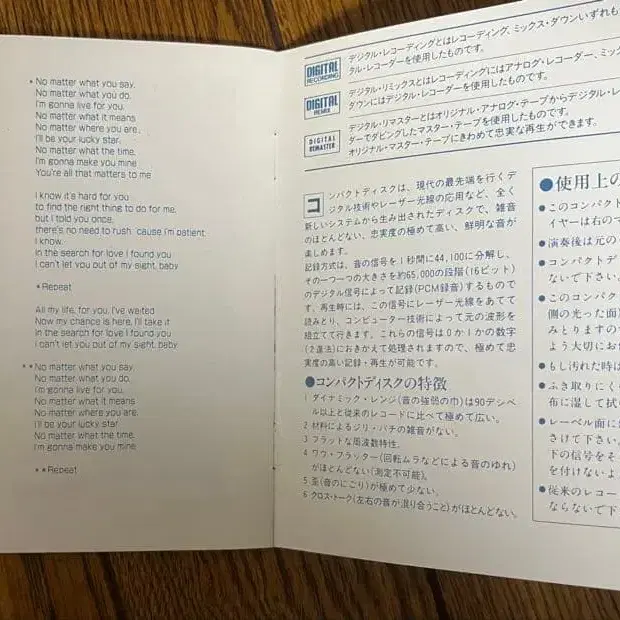 *No matter what you say,
No matter what you do,
I'm gonna live for you.
No matter what it means
No matter where you are,
I'll be your lucky star,
No matter what the time,
I'm gonna make you mine
You're all that matters to me
I know it's hard for you
to find the right thing to do for me,
but I told you once,
there's no need to rush 'cause I'm patient,
I know.
In the search for love I found you
I can't let you out of my sight, baby
*Repeat
All my life, for you, I've waited
Now my chance is here, I'll take it
In the search for love I found you
I can't let you out of my sight, baby
**No matter what you say
No matter what you do,
I'm gonna live for you,
No matter what it means
No matter where you are,
I'll be your lucky star
No matter what the time,
I'm gonna make you mine
**Repeat
DIGITAL
RECORDING
デジタル・レコーディングとはレコーディング、ミックス・ダウンいずれも
タル・レコーダーを使用したものです。
DIGITAL
REMIX
デジタル・リミックスとはレコーディングにはアナログ・レコーダー、ミック
ダウンにはデジタル・レコーダーを使用したものです。
DIGITAL
REMASTER
デジタル・リマスターとはオリジナル・アナログ・テープからデジタル・レ
ダーでダビングしたマスター・テープを使用したものです。
オリジナル・マスター・テープにきわめて忠実な再生ができます。
コンパクトディスクは、現代の最先端を行くデ
ジタル技術やレーザー光線の応用など、全く
新しいシステムから生み出されたディスクで、雑音
のほとんどない、忠実度の極めて高い、鮮明な音が
楽しめます。
記録方式は、音の信号を1秒間に44,100に分解し、
その一つ一つの大きさを約65,000の段階(16ビット)
のデジタル信号によって記録(PCM録音)するもので
す。再生時には、この信号にレーザー光線をあてて
読みとり、コンピューター技術によって元の波形を
組立てて行きます。これらの信号は0か1かの数字
(2進法)におきかえて処理されますので、極めて忠
実度の高い記録・再生が可能です。
●コンパクトディスクの特徴
1 ダイナミック・レンジ(音の強弱の巾)は90デシベ
ル以上と従来のレコードに比べて極めて広い。
2 材料によるジリ・パチの雑音がない。
3 フラットな周波数特性。
4 ワウ・フラッター(回転ムラなどによる音のゆれ)
がほとんどない(測定不可能)。
5 歪(音のにごり)が極めて少ない。
6 クロス・トーク(左右の音が混り合うこと)がほとんどない。
●使用上の
●このコンパクト
イヤーは右のマ
●演奏後は元の
●コンパクトディ
ないで下さい。
●このコンパク
側の光った面)
みとりますので
よう大切にお
●もし汚れた時は
●ふき取りにく
布に湿して拭
●レーベル面に
さけて下さい。
下の信号をそ
を付けないよ
●従来のレコー
ならないで下